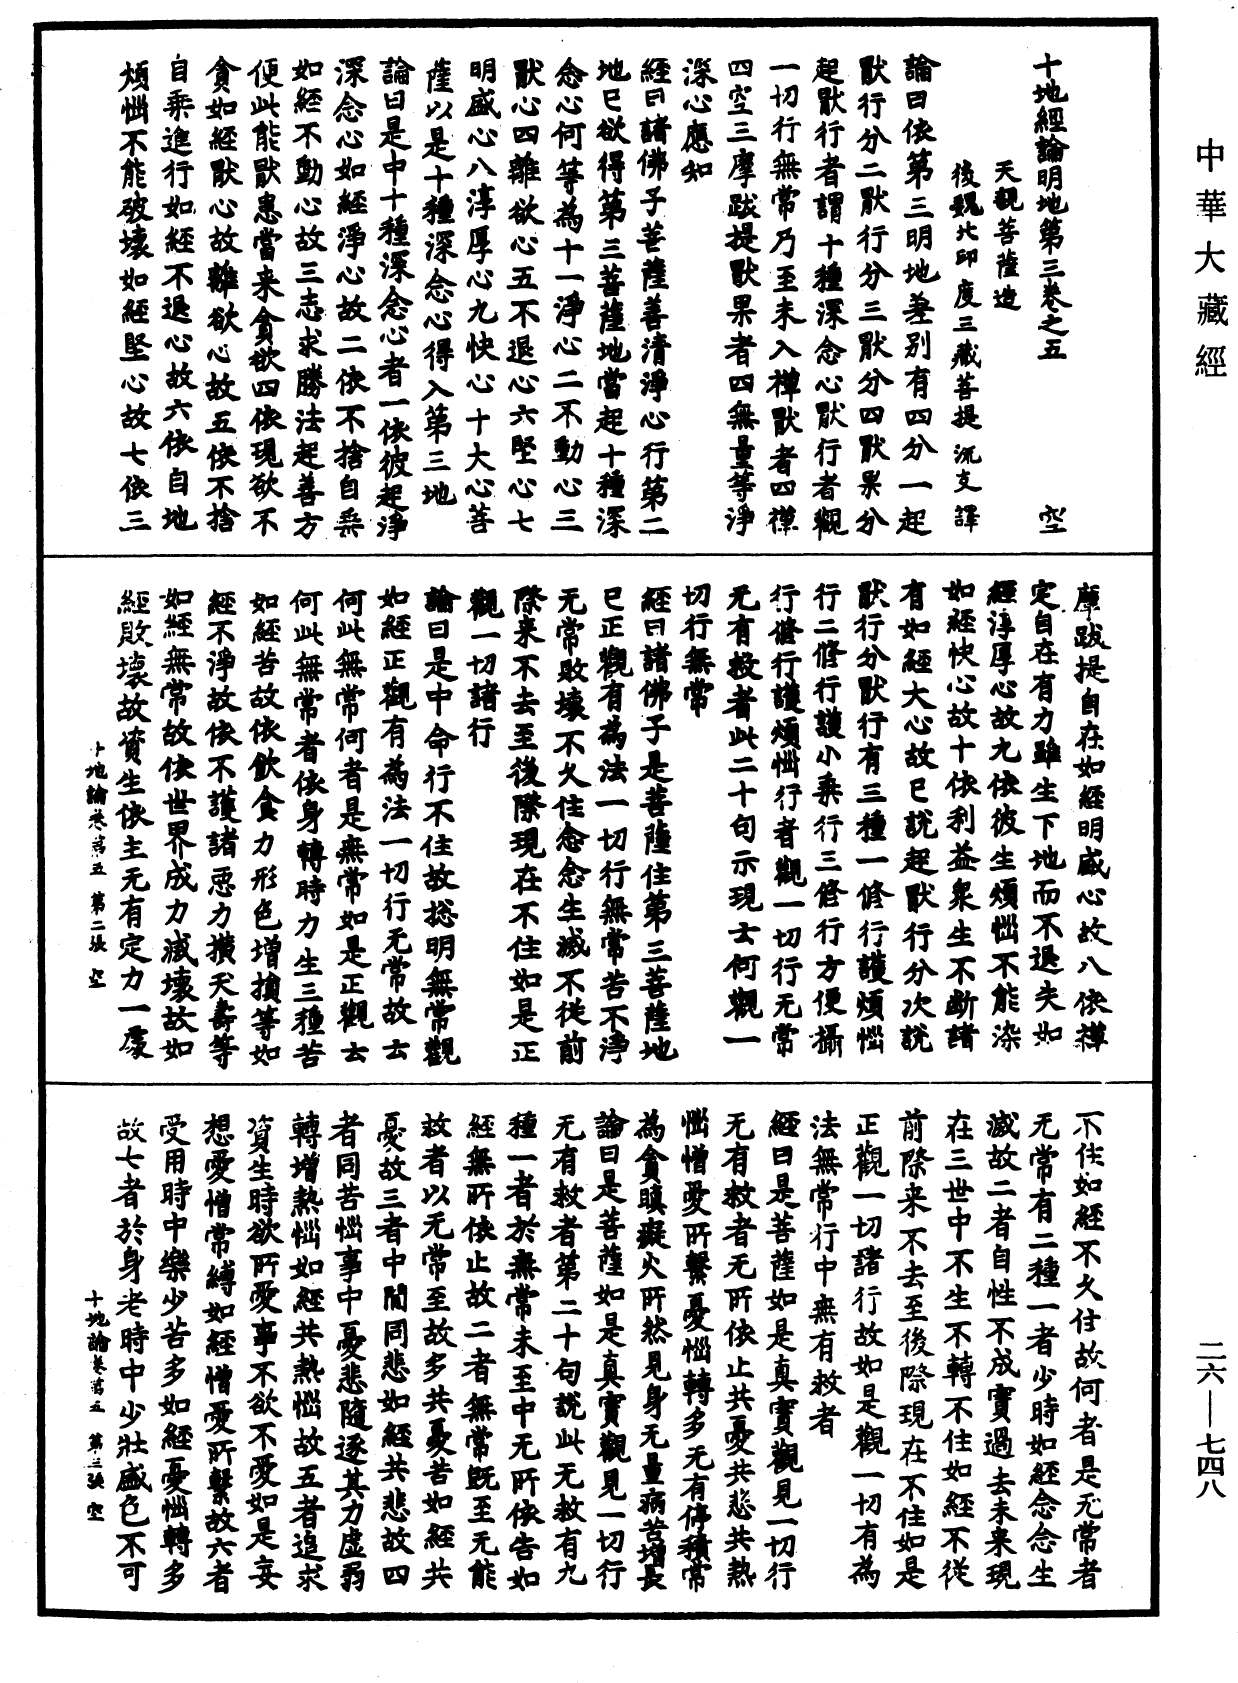 中華大藏經
十地經論明地第三卷之五　空
天親菩薩造
後魏北印度三藏菩提流支譯
論曰依第三明地差別有四分一起
猒行分二猒行分三猒分四猒果分
起猒行者謂十種深念心猒行者觀
一切行無常乃至未入禪猒者四禪
四空三摩跋提猒果者四無量等淨
深心應知
經曰諸佛子菩薩善清淨心行第二
地已欲得第三菩薩地當起十種深
念心何等為十一淨心二不動心三
猒心四離欲心五不退心六堅心七
明盛心八淳厚心九快心十大心菩
薩以是十種深念心得入第三地
論曰是中十種深念心者一依彼起淨
深念心如經淨心故二依不捨自乘
如經不動心故三志求勝法起善方
便此能猒患當来貪欲四依現欲不
貪如經猒心故離欲心故五依不捨
自乘進行如經不退心故六依自地
煩惱不能破壞如經堅心故七依三
摩跋提自在如經明盛心故八依禪
定自在有力雖生下地而不退失如
經淳厚心故九依彼生煩惱不能染
如經快心故十依利益衆生不斷諸
有如經大心故已說起猒行分次說
猒行分猒行有三種一修行護煩惱
行二修行護小乘行三修行方便攝
行修行護煩惱行者觀一切行无常
无有救者此二十句示現云何觀一
切行無常
經曰諸佛子是菩薩住第三菩薩地
已正觀有為法一切行無常苦不淨
无常敗壞不久住念念生滅不從前
際来不去至後際現在不住如是正
觀一切諸行
論曰是中命行不住故捴明無常觀
如經正觀有為法一切行无常故云
何此無常何者是無常如是正觀云
何此無常者依身轉時力生三種苦
如經苦故依飲食力形色增損等如
經不淨故依不護諸惡力撗夭壽等
如經無常故依世界成力滅壞故如
經敗壞故資生依主无有定力一處
十地論卷第五　第二張　空
不住如經不久住故何者是无常者
无常有二種一者少時如經念念生
滅故二者自性不成實過去未来現
在三世中不生不轉不住如經不從
前際来不去至後際現在不住如是
正觀一切諸行故如是觀一切有為
法無常行中無有救者
經曰是菩薩如是真實觀見一切行
无有救者无所依止共憂共悲共熱
惱憎愛所繫憂惱轉多无有停積常
為貪瞋癡火所然見身无量病苦增長
論曰是菩薩如是真實觀見一切行
无有救者第二十句說此无救有九
種一者於無常未至中无所依告如
經無所依止故二者無常既至无能
救者以无常至故多共憂苦如經共
憂故三者中間同悲如經共悲故四
者同苦惱事中憂悲隨逐其力虛弱
轉增熱惱如經共熱惱故五者追求
資生時欲所愛事不欲不愛如是妄
想愛憎常縛如經憎愛所繫故六者
受用時中樂少苦多如經憂惱轉多
故七者於身老時中少壯盛色不可
十地論卷第五　第三張　空
二六—七四八